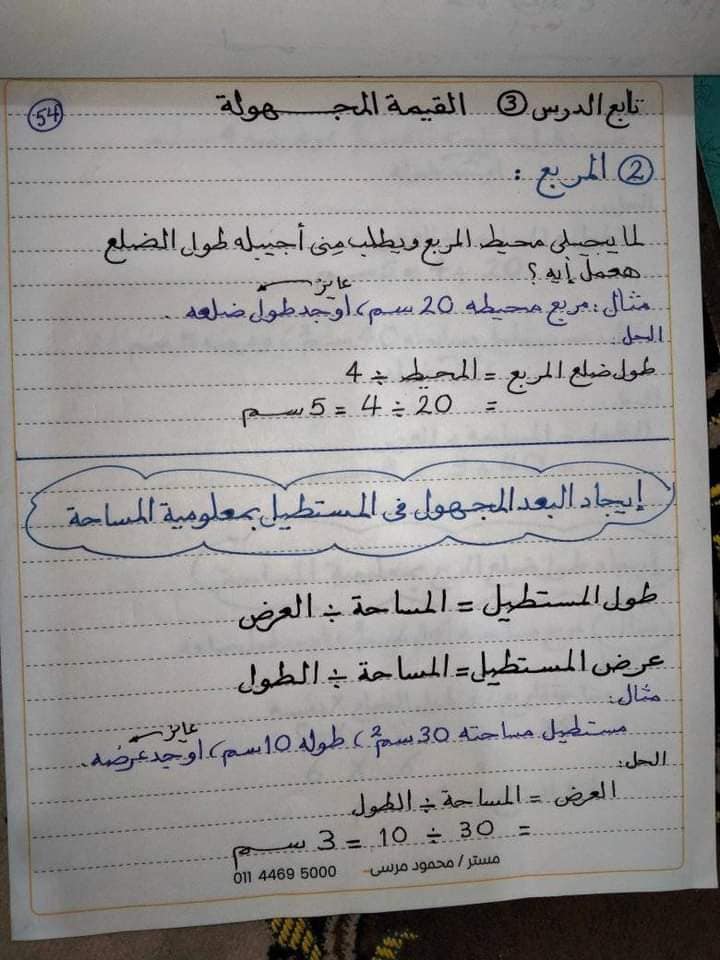 تابع الدرس ③ القيمة المجهولة
54
② المربع :
لما يجيبلى محيط المربع ويطلب مِنى أجيبله طول الضلع
هعمل إيه ؟
عايز
مثال : مربع محيطه 20 سم ، اوجد طول ضلعه .
الحل :
طول ضلع المربع = المحيط ÷ 4
= 20 ÷ 4 = 5 سم
إيجاد البعد المجهول فى المستطيل بمعلومية المساحة
طول المستطيل = المساحة ÷ العرض
عرض المستطيل = المساحة ÷ الطول
مثال :
عايز
مستطيل مساحته 30 سم² ، طوله 10 سم ، اوجد عرضه .
الحل :
العرض = المساحة ÷ الطول
= 30 ÷ 10 = 3 سم
مستر / محمود مرسى - 011 4469 5000